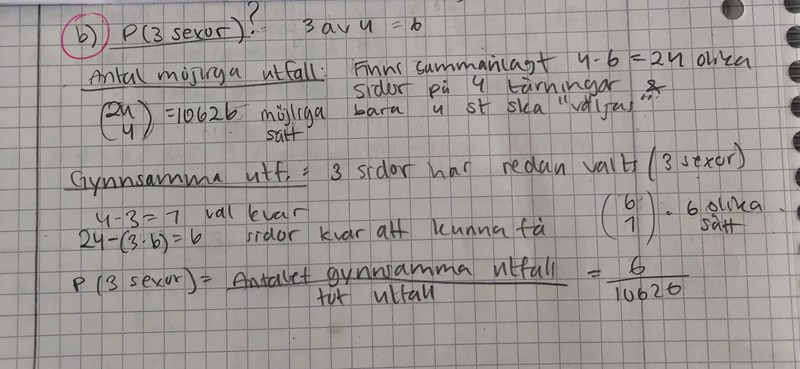 b) P(3 sexor)? 3 av 4 = 6
Antal möjliga utfall: Finns sammanlagt 4·6=24 olika
sidor på 4 tärningar &
(24 4) =10626 möjliga sätt bara 4 st ska "väljas".
Gynnsamma utf. = 3 sidor har redan valts (3 sexor)
4-3=1 val kvar
24-(3·6)=6 sidor kvar att kunna få (6 1) = 6 olika sätt
P(3 sexor)= Antalet gynnsamma utfall / tot utfall = 6 / 10626